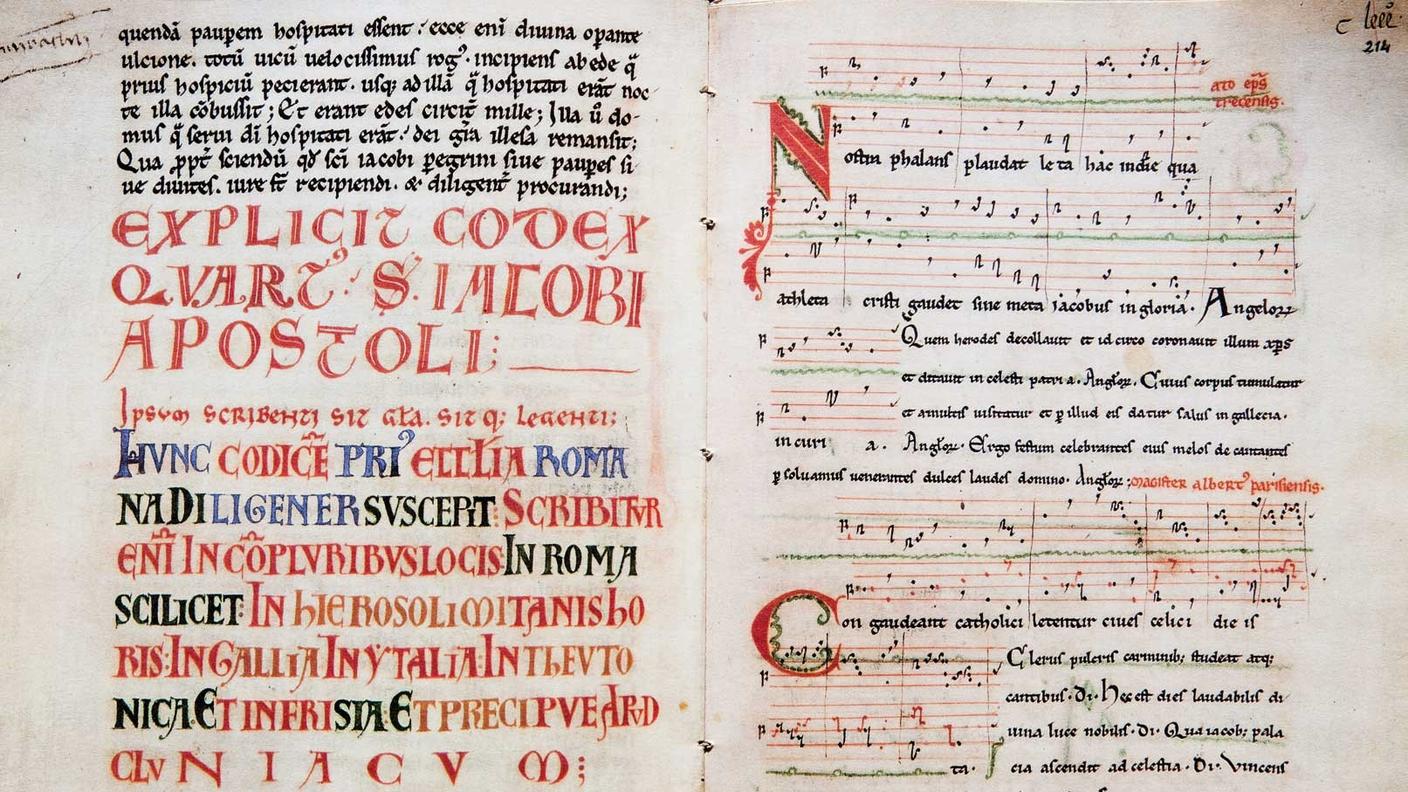 quendā paupem hospitati essent : ecce enī diuina opante
ulcione. totū uicū uelocissimus rog⁹. incipiens ab ede q̄
prius hospiciū pecierant. usq; ad illā q̄ hospitati erāt noc
te illa cōbussit ; Et erant edes circit̄ mille ; Illa ū do-
mus q̄ serui dī hospitati erāt : dei gīa illesa remansit ;
Qua ꝓpt̄ sciendū qđ scī iacobi peg̃rini siue paupes si
ue diuites. iure st̄ recipiendi. & diligent̄ procurandi ;
EXPLICIT CODEX
QVART⁹ : S. IACOBI
APOSTOLI ;
Ipsum scribenti sit gl̄a. sit q; legenti ;
HVNC CODICĒ PRI⁹ ECCL̄IA ROMA
NA DILIGENER SVSCEPIT SCRIBITVR
ENĪ IN CŌPLVRIBVS LOCIS: IN ROMA
SCILICET: IN HIEROSOLIMITANIS HO
RIS: IN GALLIA IN YTALIA: IN THEVTO
NICA ET IN FRISIA ET PRECIPVE APVD
CLVNIACVM ;
214
ato ep̄s
trecensis.
Nostra phalans plaudat leta hac in die qua
athleta cristi gaudet sine meta jacobus in gloria. Angeloꝝ
Quem herodes decollauit et id circo coronauit illum xp̄s
et ditauit in celesti patria. Angl̄oꝝ. Cuius corpus tumulatur
et a multis uisitatur et ꝑ illud eis datur salus in gallecia.
in curi a. Angl̄oꝝ. Ergo festum celebrantes eius melos decantantes
ꝑsoluamus uenerantes dulces laudes domino. Angl̄oꝝ ; magister albert⁹ parisiensis.
Congaudeant catholici letentur ciues celici die is
Clerus pulcris carminib; studeat atq;
cantibus. Di. Hec est dies laudabilis di
uina luce nobilis. Di. Qua iacob; pala
ta. cia ascendit ad celestia. Di. Vincens